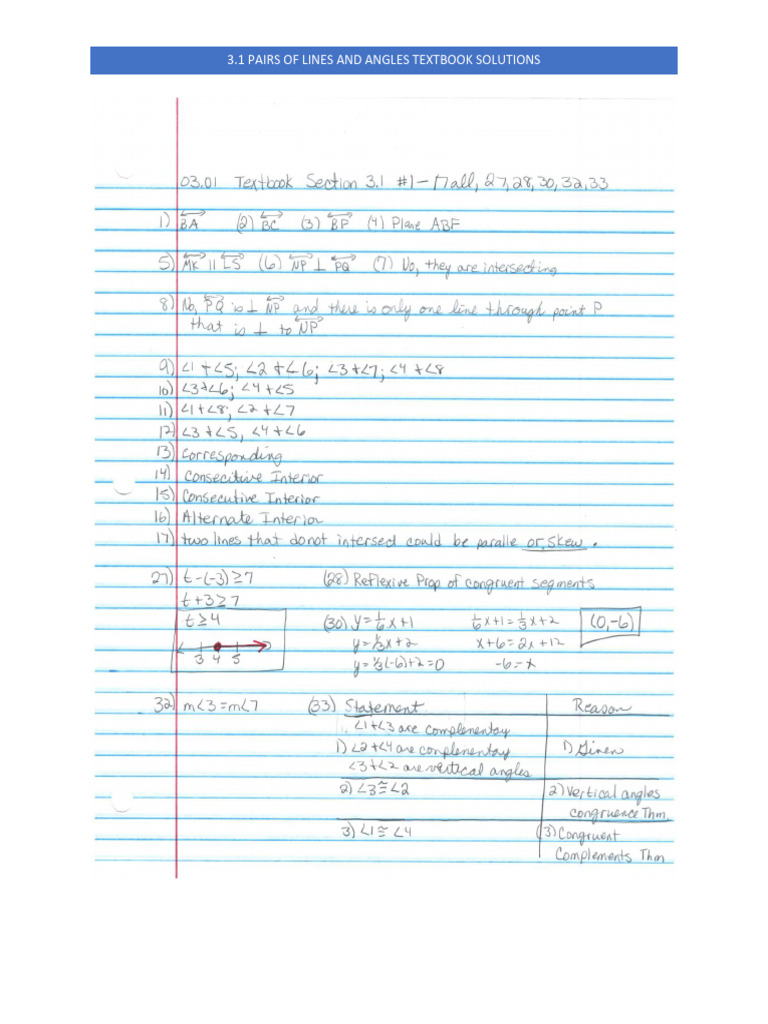 3.1 PAIRS OF LINES AND ANGLES TEXTBOOK SOLUTIONS
03.01 Textbook Section 3.1 #1-17 all, 27,28,30,32,33
1) BA (2) BC (3) BF (4) Plane ABF
5) MK || LS (6) NP ⊥ PQ (7) No, they are intersecting
8) No, PQ is ⊥ NP and there is only one line through point P
that is ⊥ to NP
9) ∠1 + ∠5; ∠2 + ∠6; ∠3 + ∠7; ∠4 + ∠8
10) ∠3 + ∠6; ∠4 + ∠5
11) ∠1 + ∠8; ∠2 + ∠7
12) ∠3 + ∠5, ∠4 + ∠6
13) Corresponding
14) Consecitive Interior
15) Consecutive Interior
16) Alternate Interior
17) two lines that do not intersect could be paralle or, skew.
27) t-(-3) ≥ 7 (28) Reflexive Prop of congruent segments
t+3 ≥ 7
t ≥ 4 (30) y = 1/6 x + 1 1/6 x + 1 = 1/3 x + 2 (0,-6)
3 4 5 y = 1/3 x + 2 x + 6 = 2x + 12
y = 1/3(-6)+2 = 0 -6 = x
32) m∠3 = m∠7 (33) Statement Reason
∠1 + ∠3 are complementay
1) ∠2 + ∠4 are complementay 1) Given
∠3 + ∠2 are vertical angles
2) ∠3 ≅ ∠2 2) Vertical angles
congruence Thm
3) ∠1 ≅ ∠4 (3) Congruent
Complements Thm